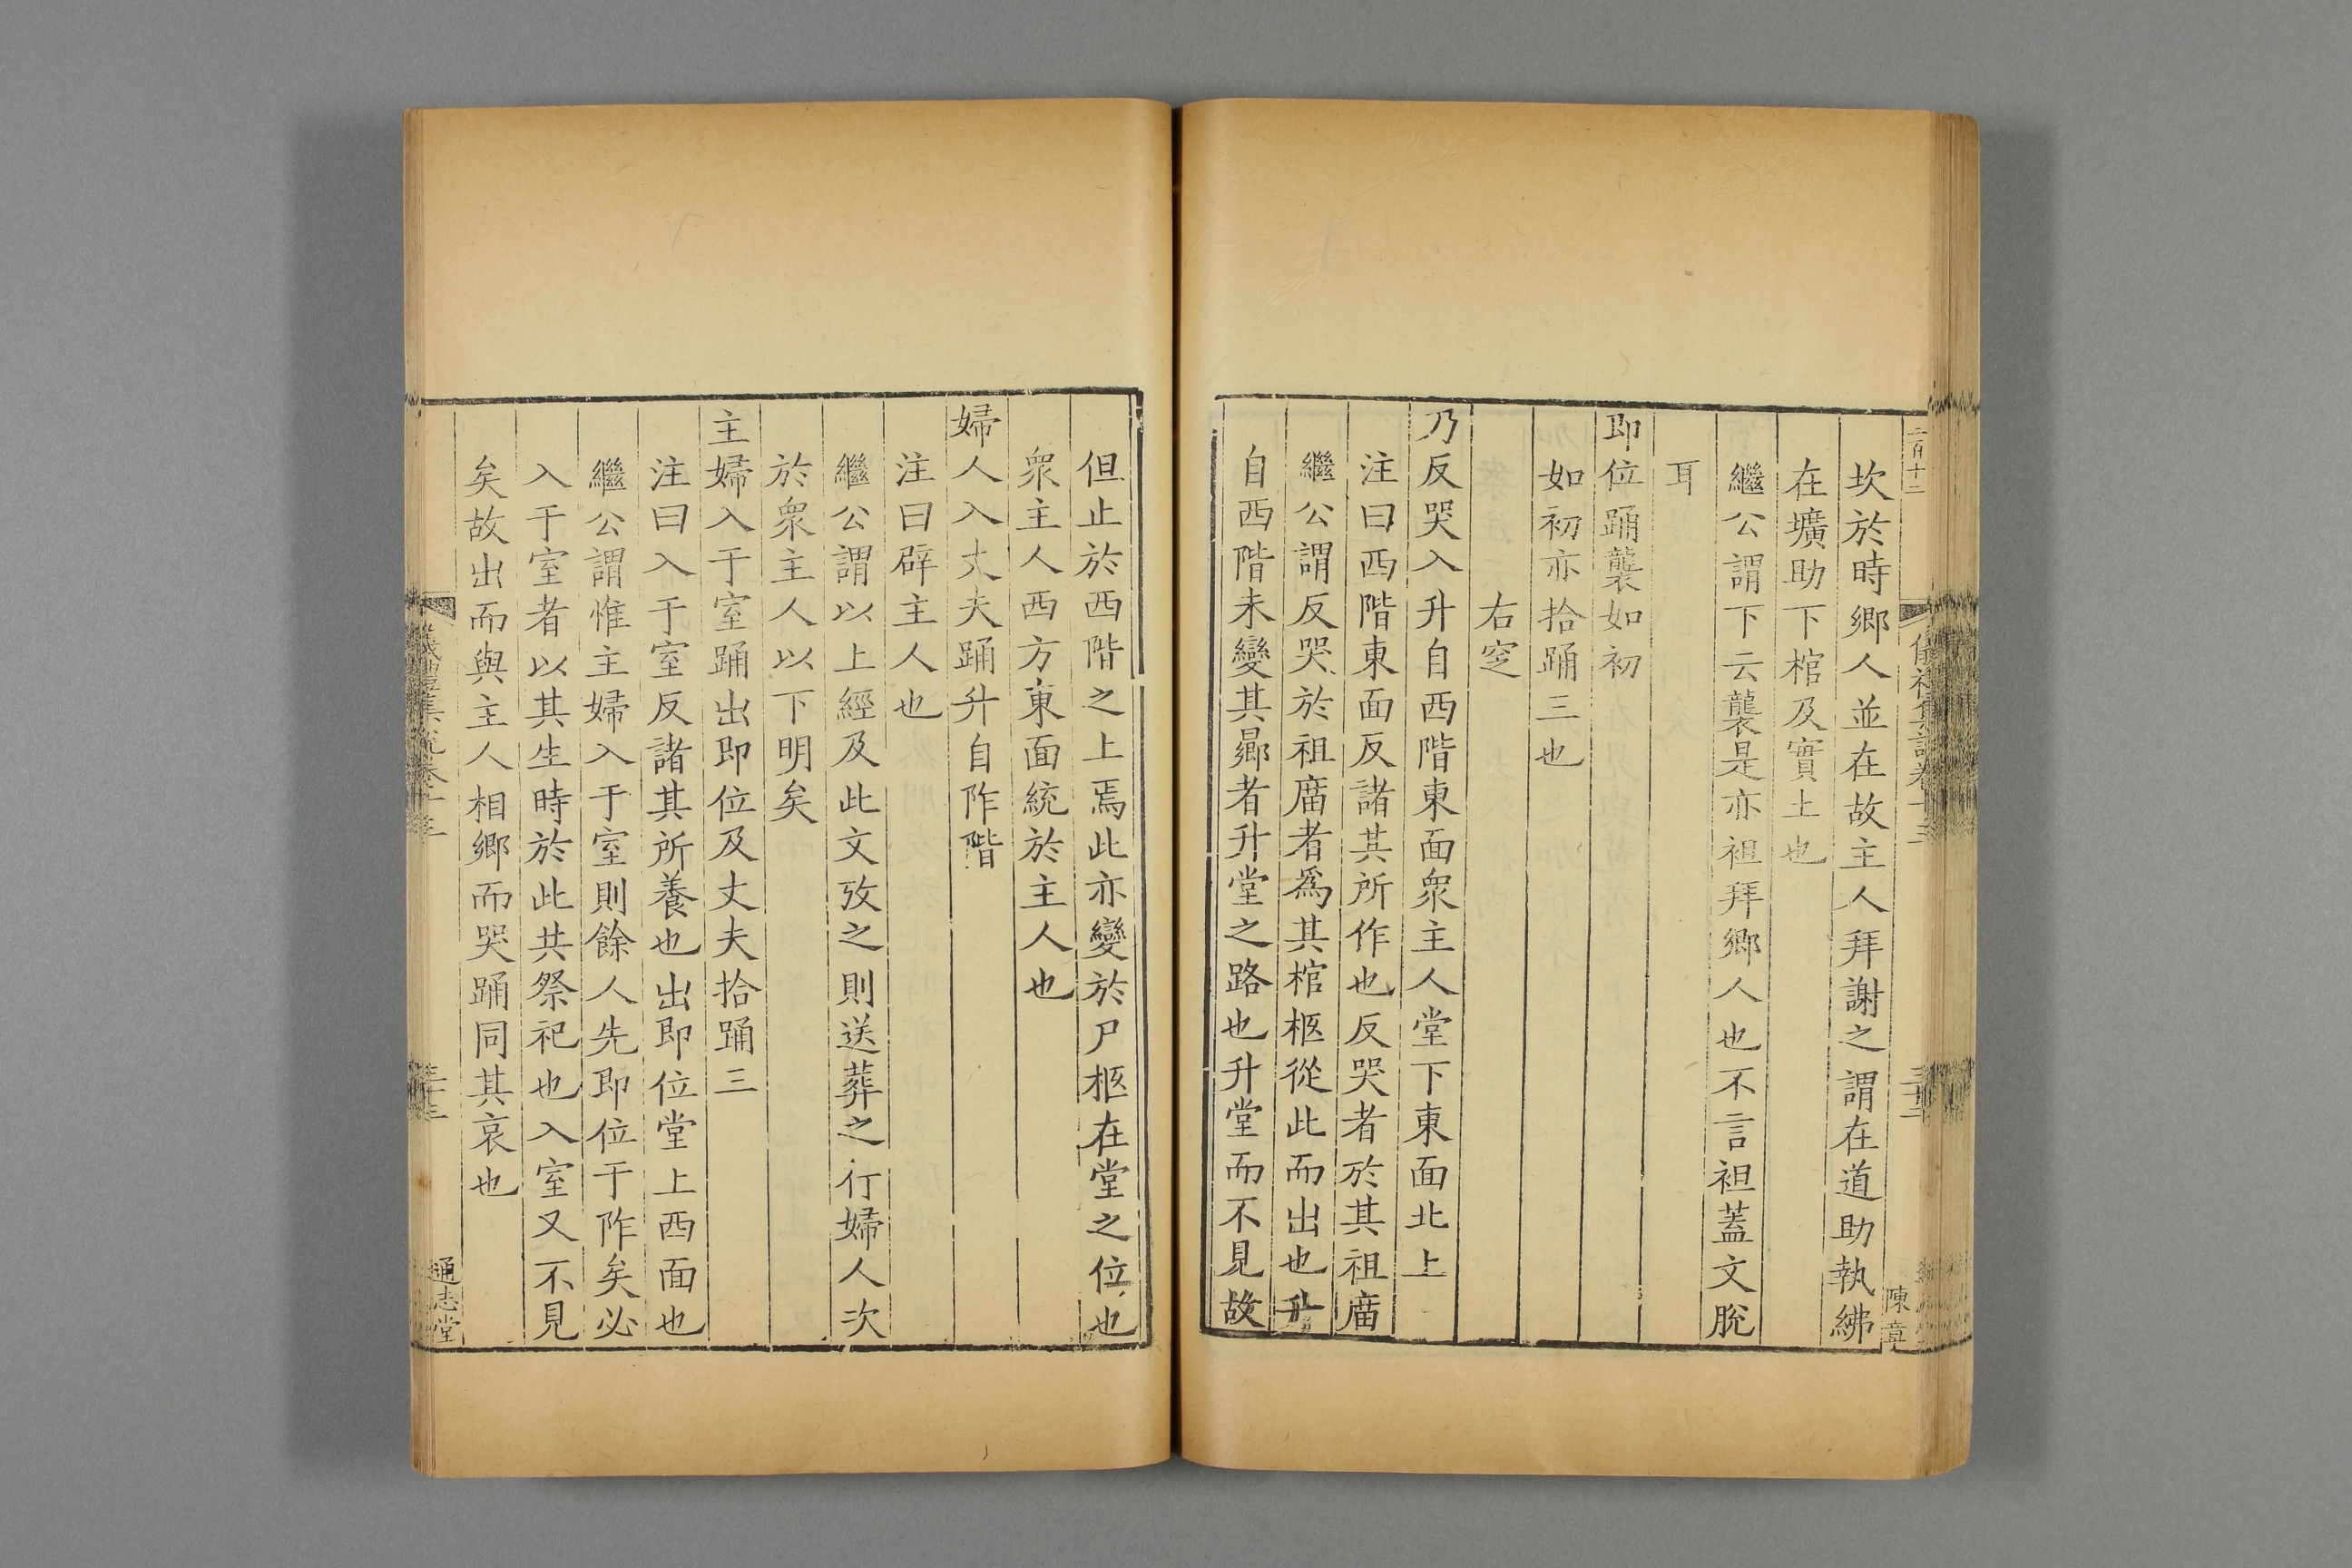 二百十二
儀禮集說卷十三
三十二
陳章
坎於時鄉人並在故主人拜謝之謂在道助執紼
在壙助下棺及實土也
繼公謂下云襲是亦袒拜鄉人也不言袒蓋文脫
耳
即位踊襲如初
如初亦拾踊三也
右窆
乃反哭入升自西階東面眾主人堂下東面北上
注曰西階東面反諸其所作也反哭者於其祖廟
繼公謂反哭於祖廟者為其棺柩從此而出也升
自西階未變其鄉者升堂之路也升堂而不見故
但止於西階之上焉此亦變於尸柩在堂之位也
眾主人西方東面統於主人也
婦人入丈夫踊升自阼階
注曰辟主人也
繼公謂以上經及此文攷之則送葬之行婦人次
於眾主人以下明矣
主婦入于室踊出即位及丈夫拾踊三
注曰入于室反諸其所養也出即位堂上西面也
繼公謂惟主婦入于室則餘人先即位于阼矣必
入于室者以其生時於此共祭祀也入室又不見
矣故出而與主人相鄉而哭踊同其哀也
通志堂